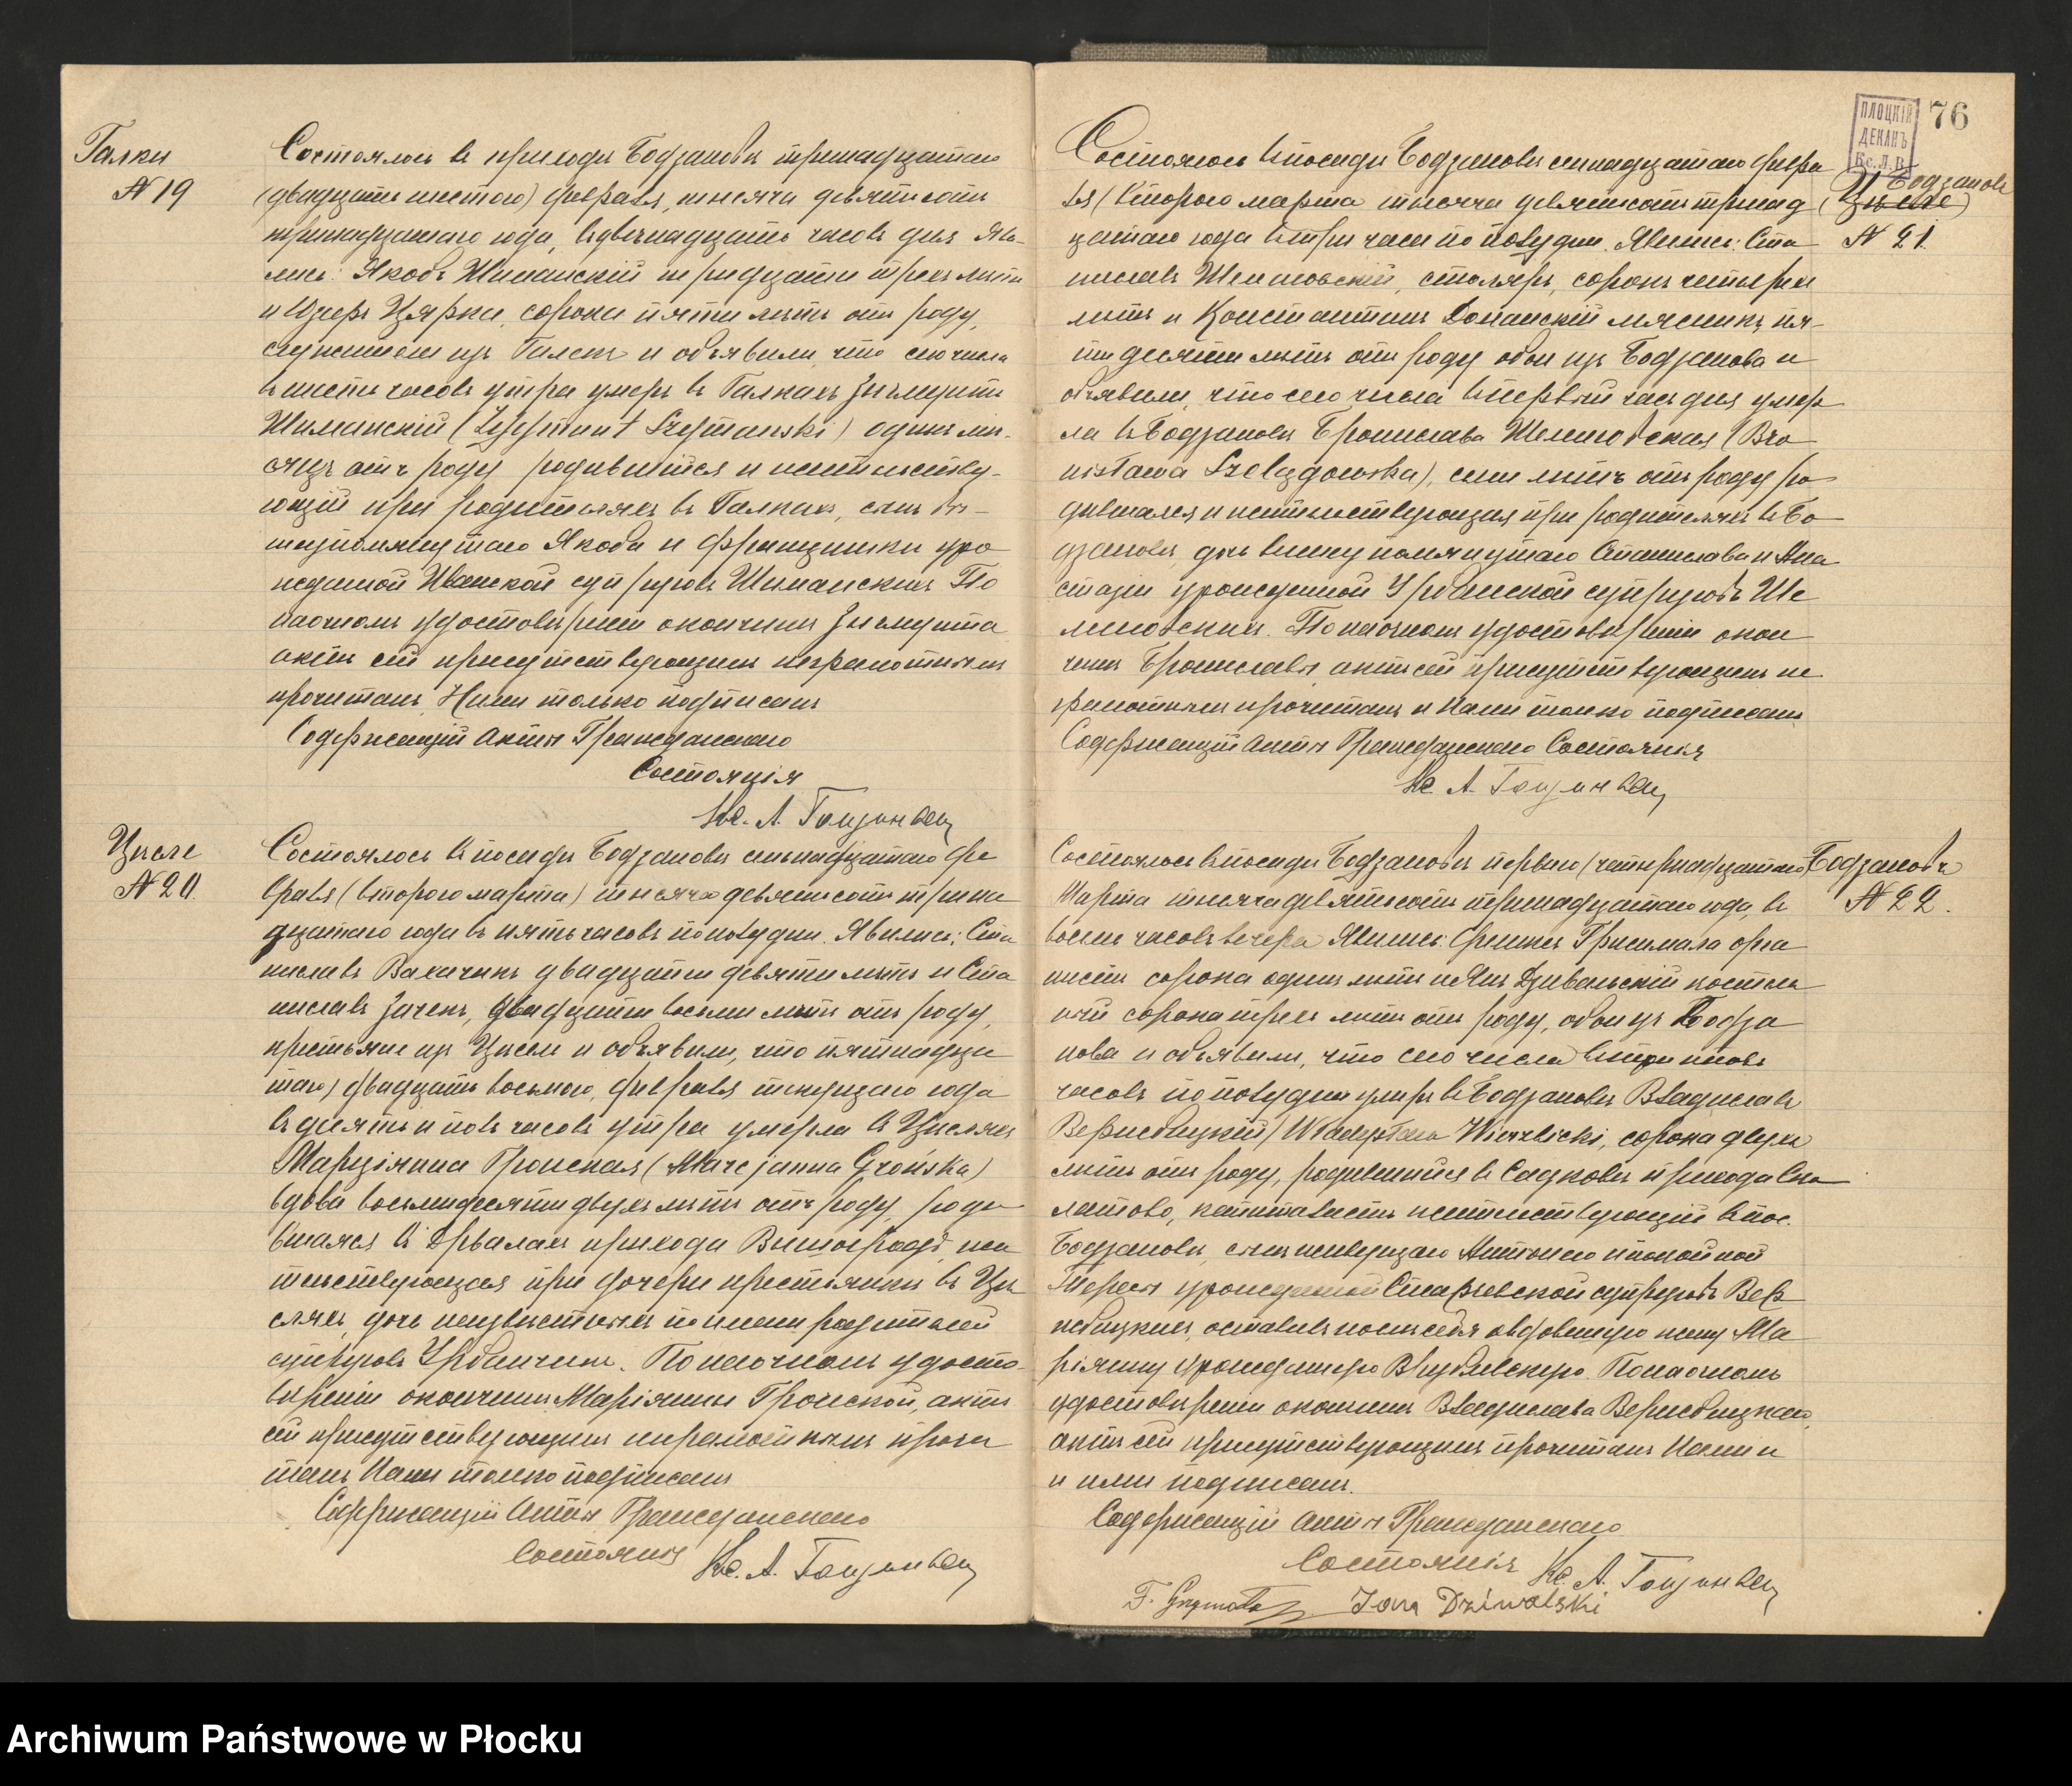 Галки
№ 19
Состоялось въ приходѣ Бодзановѣ тринадцатаго
(двадцать шестого) февраля, тысяча девятьсотъ
тринадцатаго года, въ двѣнадцать часовъ дня. Яви-
лись: Якобъ Шиманскій тридцати трехъ лѣтъ
и Юзефъ Цярка, сорока пяти лѣтъ отъ роду,
изъ Галекъ и объявили, что сего числа
въ шесть часовъ утра умеръ въ Галкахъ Зыгмунтъ
Шиманскій (Zygmunt Szymański) одинъ мѣ-
сяцъ отъ роду родившійся и жительству-
ющій при родителяхъ въ Галкахъ, сынъ вы-
шеупомянутаго Якоба и Францишки уро
жданной Иванской супруговъ Шиманскихъ. По
наочномъ удостовѣреніи о кончинѣ Зыгмунта
актъ сей присутствующимъ неграмотнымъ
прочитанъ, Нами только подписанъ
Содержащій акты Гражданскаго
Состоянія
Кс. А.
Цысле
№ 20.
Состоялось въ посадѣ Бодзановѣ семнадцатаго фе
враля (второго марта) тысяча девятьсотъ трина
дцатаго года въ пять часовъ по полудни. Явились: Ста
ниславъ двадцати девяти лѣтъ и Ста
ниславъ двадцати восьми лѣтъ отъ роду,
крестьяне изъ Цысель и объявили, что пятнадца
таго (двадцать восьмого) февраля текущаго года
въ десять и полъ часовъ утра умерла въ Цысляхъ
Марціянна Гронская (Marcjanna Grońska)
вдова восьмидесяти двухъ лѣтъ отъ роду, роди
вшаяся въ Дрвалахъ прихода Вышогродъ, жи
тельствующая при дочери крестьянкѣ въ Цы
сляхъ, дочь неизвѣстныхъ по имени родителей
супруговъ Урбанчикъ. По наочномъ удосто-
вѣреніи о кончинѣ Марціянны Гронской, актъ
сей присутствующимъ неграмотнымъ прочи
танъ Нами только подписанъ
Содержащій акты Гражданскаго
Состоянія Кс. А.
ПЛОЦКІЙ
ДЕКАНЪ
Кс. Л. В.
76
Состоялось въ посадѣ Бодзановѣ семнадцатаго февра
ля (второго марта тысяча девятьсотъ тринад
цатаго года въ три часа по полудни. Явились: Ста
ниславъ столяръ, сорокъ четырехъ
лѣтъ и Константинъ мясникъ пя-
тидесяти лѣтъ отъ роду обои изъ Бодзанова и
объявили, что сего числа въ первый часъ дня умер
ла въ Бодзановѣ Бронислава (Bro
nisława Szelągowska), семи лѣтъ отъ роду ро
дившаяся и жительствующая при родителяхъ въ Бо
дзановѣ, дочь вышеупомянутаго Станислава и Ана
стазіи урожденной Урбанской супруговъ Ше
. По наочномъ удостовѣреніи о кон
чинѣ Брониславы, актъ сей присутствующимъ не
грамотнымъ прочитанъ и Нами только подписанъ
Содержащій акты Гражданскаго Состоянія
Кс. А.
Бодзановъ
(Цысле)
№ 21.
Состоялось въ посадѣ Бодзановѣ перваго (четырнадцатаго)
Марта тысяча девятьсотъ тринадцатаго года, въ
восемь часовъ вечера. Явились: Франц. орга
нистъ сорока одинъ лѣтъ и Янъ Дзивальскій костель
ный сорока трехъ лѣтъ отъ роду, обои изъ Бодза
нова и объявили, что сего числа въ три и полъ
часовъ по полудни умеръ въ Бодзановѣ Владиславъ
Вержбицкій (Władysław Wierzbicki, сорока двухъ
лѣтъ отъ роду, родившійся въ прихода
капиталистъ жительствующій въ пос.
Бодзановѣ, сынъ живущаго Антонего и покойной
Терезы урожденной супруговъ Верж
бицкихъ, оставивъ послѣ себя овдовѣвшую жену Ма
ріянну урожденную. По наочномъ
удостовѣреніи о кончинѣ Владислава Вержбицкаго,
актъ сей присутствующимъ прочитанъ Нами и
и ими подписанъ.
Содержащій акты Гражданскаго
Состоянія Кс. А.
Jan Dziwalski
Бодзановъ
№ 22.
Archiwum Państwowe w Płocku